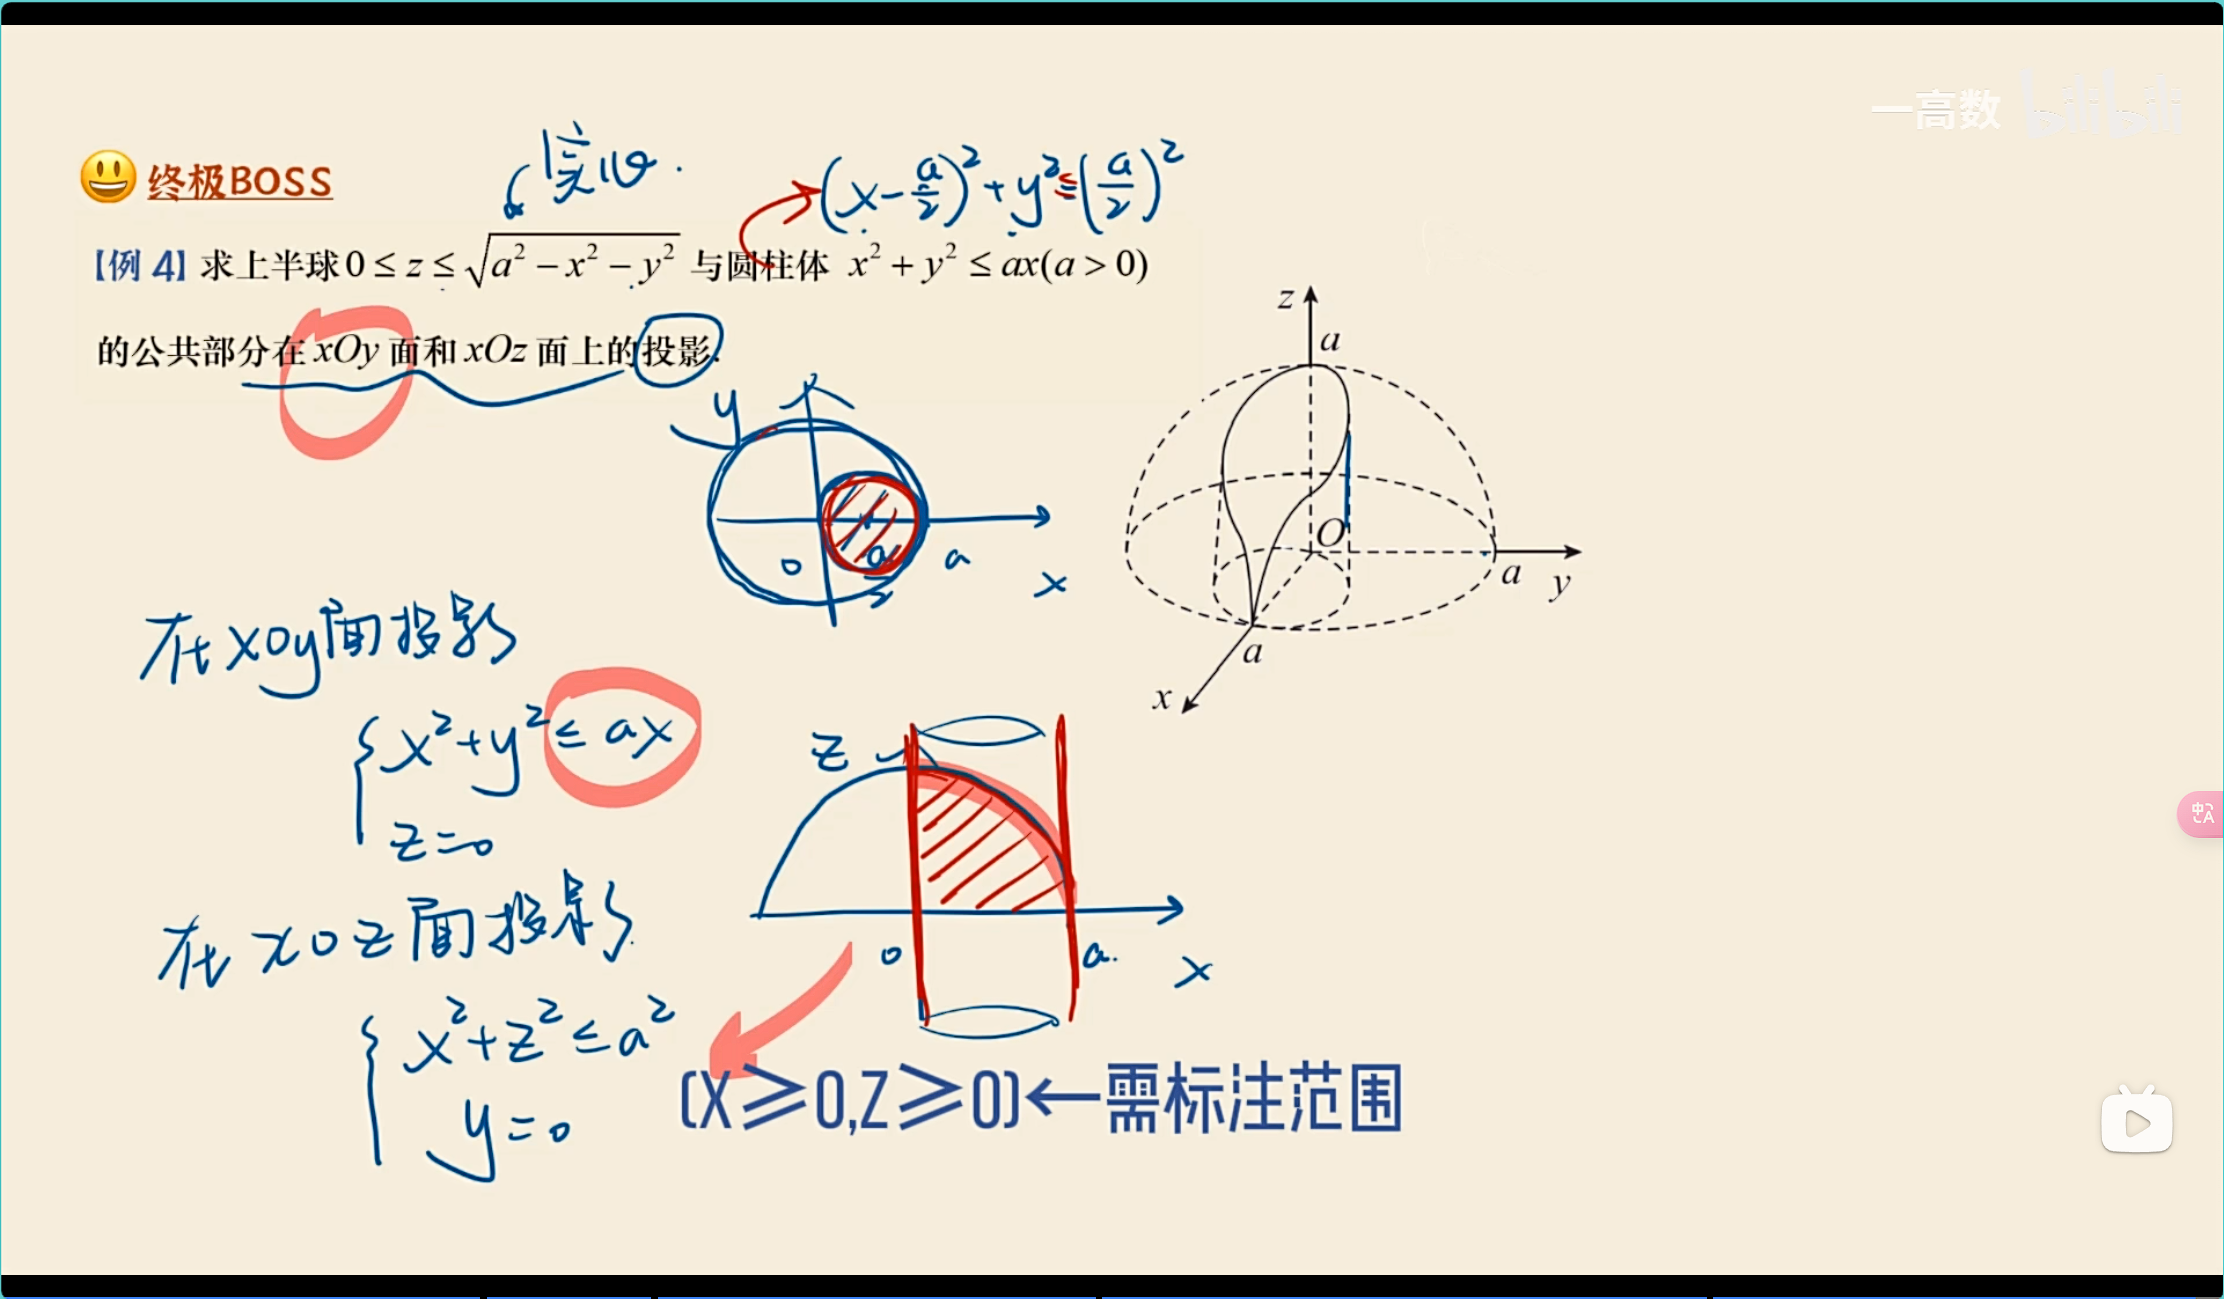 一高数 bilibili
终极BOSS
实心.
(x-a/2)²+y²≤(a/2)²
【例 4】求上半球 0 ≤ z ≤ √(a² − x² − y²) 与圆柱体 x² + y² ≤ ax(a > 0)
的公共部分在 xOy 面和 xOz 面上的投影.
y
0
a/2
a
x
z
a
O
a
y
a
x
在xoy面投影
x²+y²≤ax
z=0
z
0
a.
x
在xoz面投影
x²+z²≤a²
y=0
(X≥0,Z≥0)←需标注范围
中A